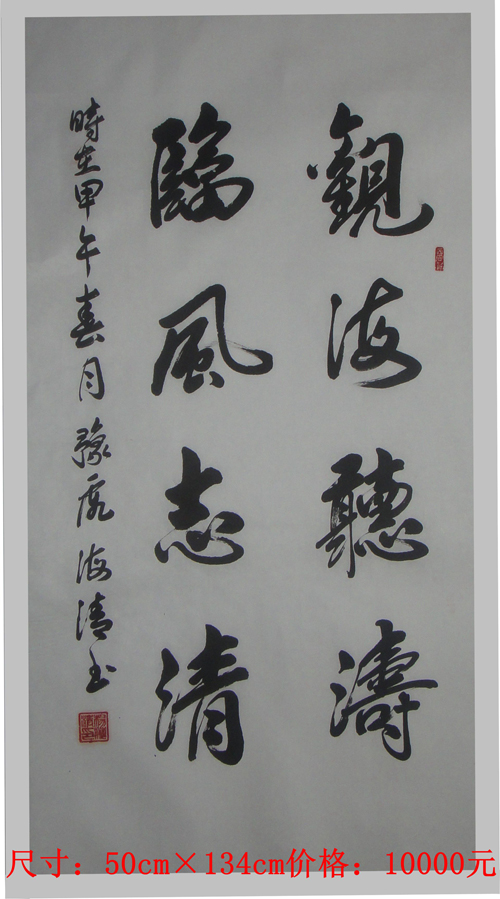 觀海聽濤
臨風志清
時在甲午春月豫海清书
尺寸：50cm×134cm价格：10000元